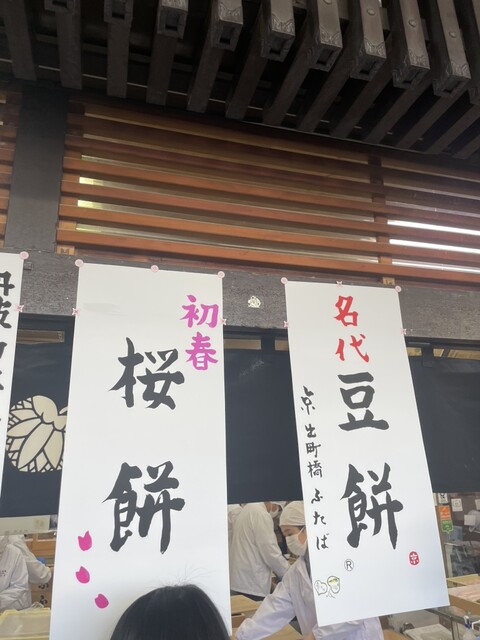 名代
豆餅
京出町橋ふたば
®
初春
桜餅